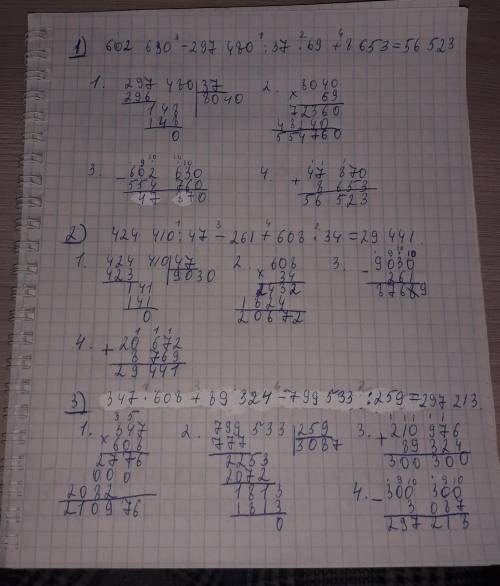 1) 602 630 - 297 480 : 37 · 69 + 8 653 = 56 523
1. 297 480 | 37
296 | 8040
148
148
0
2. 8040
× 69
72360
48240
554760
3. - 602 630
554 760
47 870
4. + 47 870
8 653
56 523
2) 424 410 : 47 - 261 + 608 · 34 = 29 441.
1. 424 410 | 47
423 | 9030
141
141
0
2. 608
× 34
2432
1824
20672
3. - 9030
261
8769
4. + 20 672
8 769
29 441
3) 347 · 608 + 89 324 - 799 533 : 259 = 297 213.
1. 347
× 608
2776
000
2082
210976
2. 799 533 | 259
777 | 3087
2253
2072
1813
1813
0
3. + 210 976
89 324
300 300
4. - 300 300
3 087
297 213